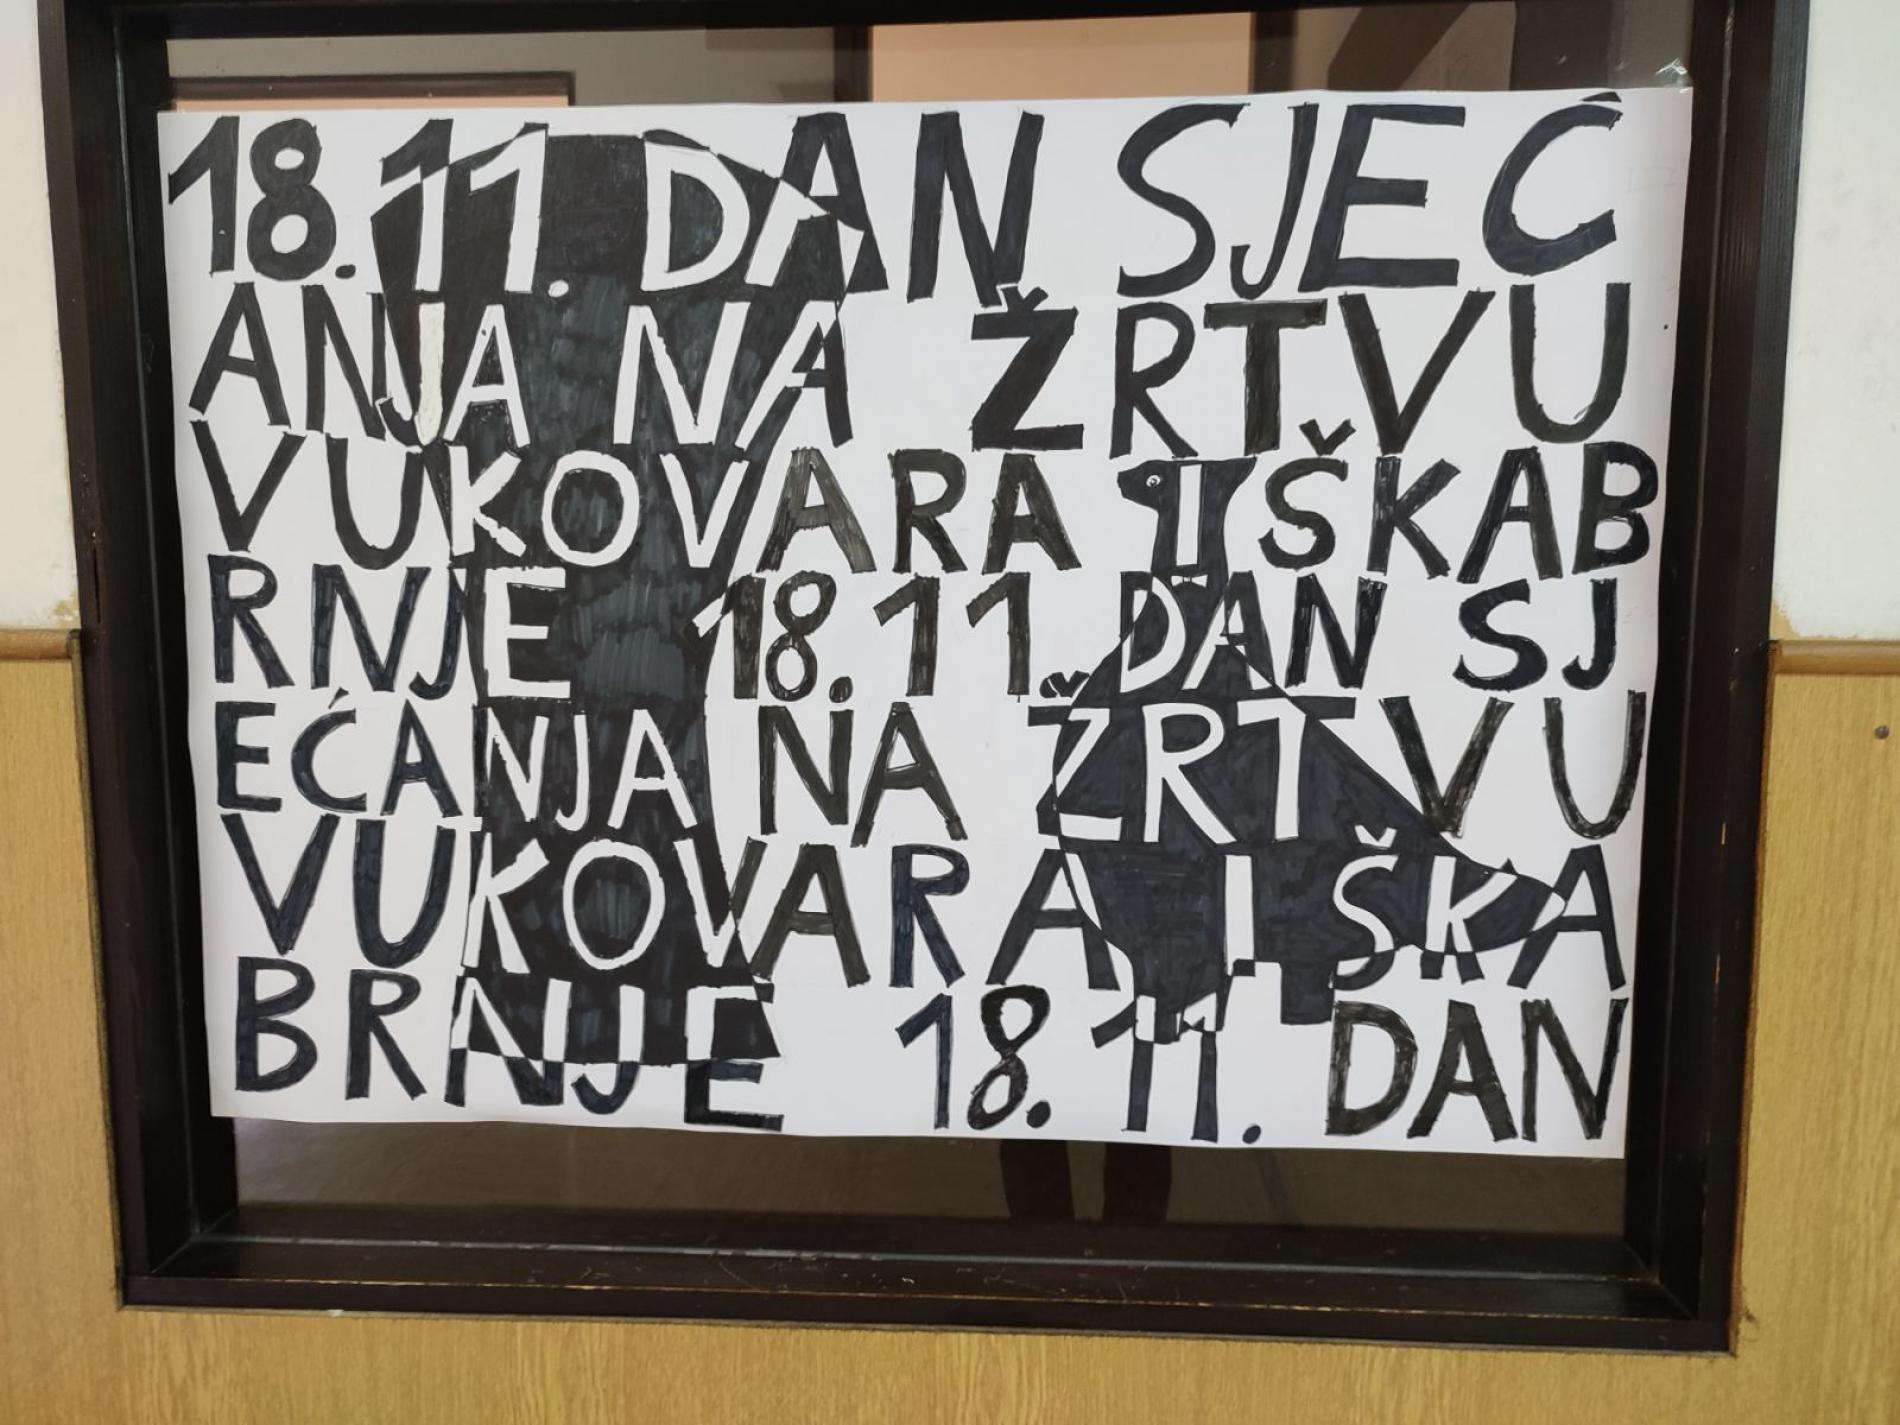 18.11. DAN SJEĆ
ANJA NA ŽRTVU
VUKOVARA I ŠKAB
RNJE 18.11. DAN SJ
EĆANJA NA ŽRTVU
VUKOVARA I ŠKA
BRNJE 18.11. DAN